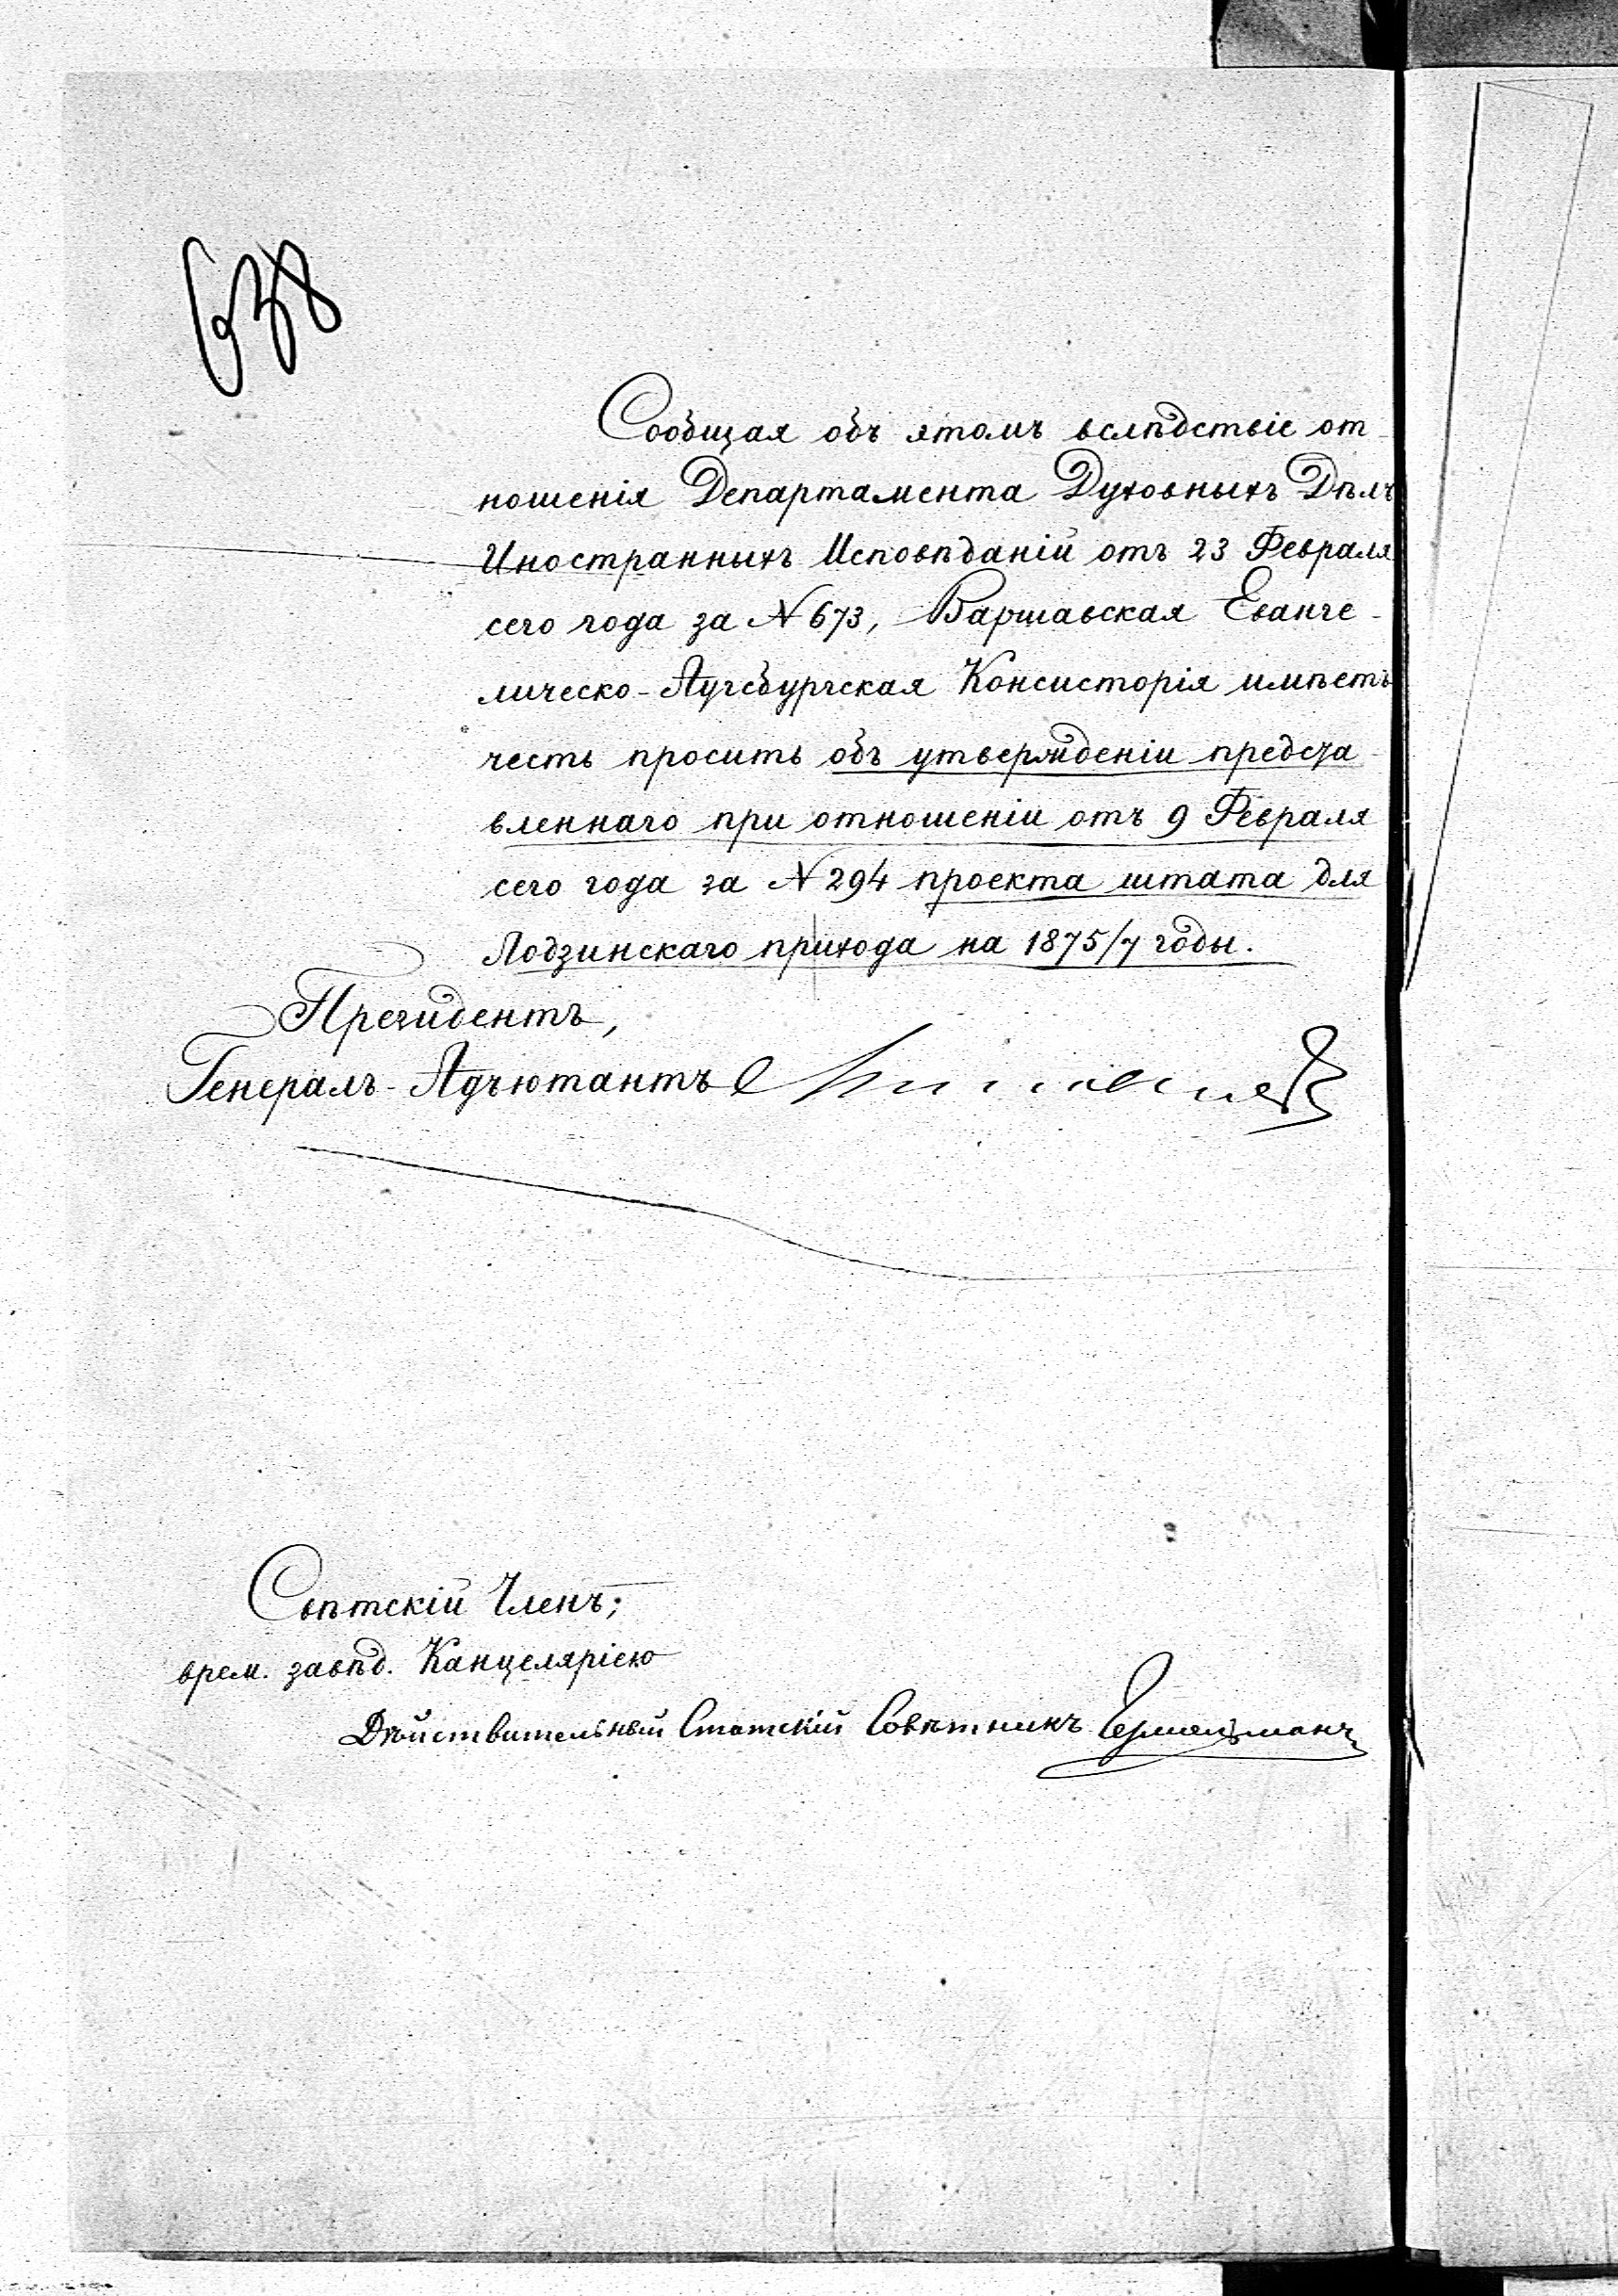 638
Сообщая объ этомъ вслѣдствіе от-
ношенія Департамента Духовныхъ Дѣлъ
Иностранныхъ Исповѣданій отъ 23 Февраля
сего года за № 673, Варшавская Еванге-
лическо-Аугсбургская Консисторія имѣетъ
честь просить объ утвержденіи предста-
вленнаго при отношеніи отъ 9 Февраля
сего года за № 294 проекта штата для
Лодзинскаго прихода на 1875/7 годы.
Президентъ,
Генералъ-Адъютантъ
Свѣтскій Членъ;
врем. завѣд. Канцеляріею
Дѣйствительный Статскій Совѣтникъ